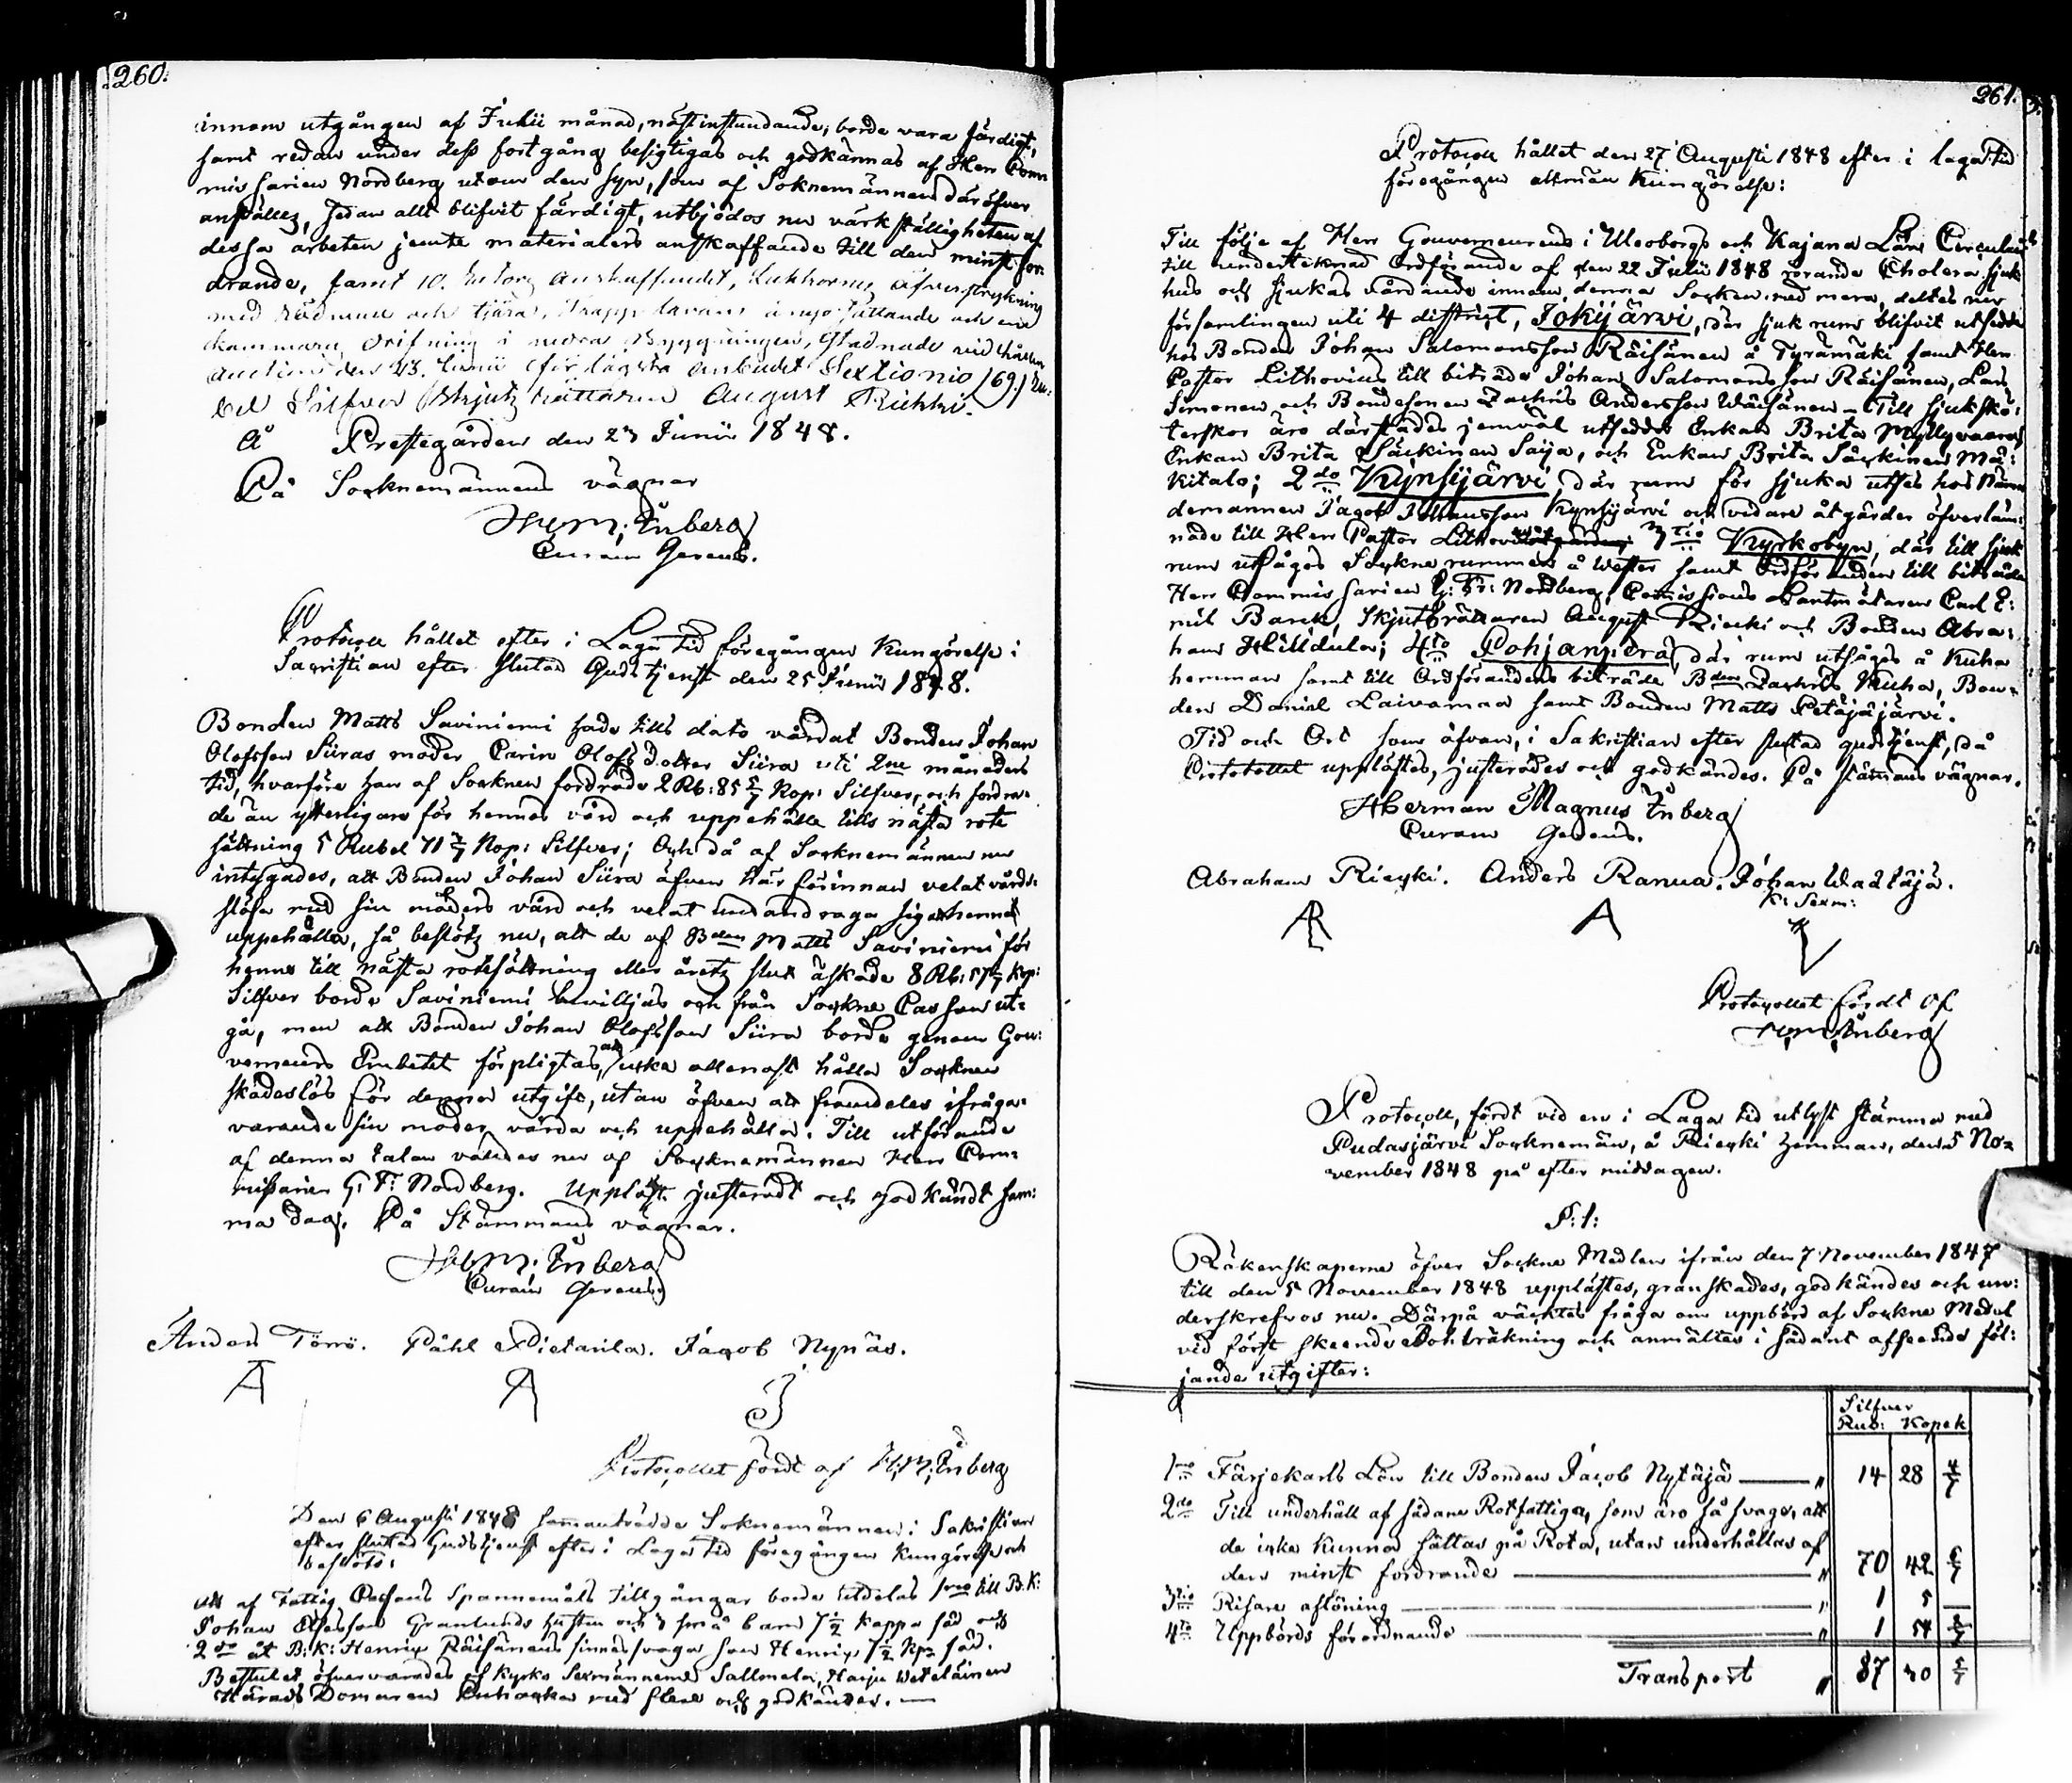 260.
innom utgången af Julii månad, nästinstundande, borde vara färdigt,
samt redan under dess fortgång besigtigas och godkännas af Herr Com-
missarien Nordberg utom den syn, som af Soknemännen däröfver
anställes, sedan allt blifvit färdigt, utbjödos nu värkställigheten af
dessa arbeten jemte materialiers anskaffande till den minst for-
drande, samt 10. anskaffandet, öfverstrykning
med rödmull och tjära, å nyo sättande och en
kammare i nedra Byggningen, stadnade vid hållen
auction den 23. Junii för lägsta anbudet Sextionio (69.) Ru-
bel Silfver Skjutsrättaren August Riekki.
Å Prestegården den 23 Junii 1848.
På Socknemännens vägnar
H: M: Enberg
Curam Gerens.
Protocoll hållet efter i Laga tid föregången Kungörelse i
Sacristian efter slutad Gudstjenst den 25 Junii 1848.
Bonden Matts Saviniemi hade tills dato vårdat Bonden Johan
Olofsson Siiras moder Carin Olofsdotter Siira uti 2ne månaders
tid, hvarföre han af Socknen fordrade 2 Rb: 85 5/7 Kop: Silfver, och fordra-
de än ytterligare för hennes vård och uppehälle tills nästa rote
sättning 5 Rubel 71 3/7 Kop: Silfver; Och då af Socknemännen nu
intygades, att Bonden Johan Siira äfven här förinnan velat vårds-
lösa med sin moders vård och velat undandraga sig hennes
uppehälla, så beslöts nu, att de af Bden Matts Saviniemi för
henne till nästa rotesättning eller årets slut äskade 8 Rb: 57 1/7 Kop:
Silfver borde Saviniemi bevilljas och från Sockne Cassan ut-
gå, men att Bonden Johan Olofsson Siira borde genom Gou-
verneurs Embetet förpligtas, att icke allenast hålla Socknen
skadeslös för denna utgift, utan äfven att framdeles ifråga-
varande sin moder vårda och uppehålla. Till utförande
af denna talan valdes nu af Socknemännen Herr Com-
missarien G: F: Nordberg. Uppläst, justeradt och godkändt sam-
ma dag. På Stämmans vägnar.
H: M: Enberg
Curam Gerens.
Anders Törrö. Påhl Pietarila. Jacob Nynäs.
Protocollet fördt af H: M: Enberg
Den 6 Augusti 1848 sammanträdde Soknemännen i Sakristian
efter slutad Gudstjenst efter i Laga tid föregången Kungörelse och
beslöts:
att af Fattig Cassans Spannemåls tillgångar borde utdelas 1mo till B. K:
Johan Granlunds hustru och 3 små barn 7 1/2 kappa säd och
2do åt B: K: Henrix Räisänens sinnessvaga son Henrix 7 1/2 Kp: säd.
Beslutet öfvervarades af Kyrko Sexmännerne Sallmela, Harju Wetelainen
Härads Domaren med flere och godkändes. —
261.
Protocoll hållet den 27 Augusti 1848 efter i laga tid
föregången allmän Kungörelse:
Till följe af Herr Gouverneurens i Uleoborgs och Kajana Län Circulair
till undertecknad Ordförande af den 22 Julii 1848 rörande Cholera sjuk
hus och sjukas vårdande innom denna Socken med mera, deltes nu
församlingen uti 4 district, Jokijärvi, där sjuk rum blifvit utsedde
hos Bonden Johan Salomonsson Räisänen å Tyrämäki samt Herr
Pastor Lithovius till biträde Johan Salomonsson Räisänen, Lars
Simonen och Bondesonen Zachris Andersson Wäisänen - Till sjukskö-
terskor äro därstädes jemväl utsedde Enkan Brita Myllyvaara,
Enkan Brita Säckinen Saija, och Enkan Brita Säckinen Mä-
kitalo; 2do Kynsijärvi, där rum för sjuka utses hos Nämn
demannen Jacob Johansson Kynsijärvi och vidare åtgärder öfverläm-
nade till Herr Pastor 3tio Kyrkobyn, där till sjuk
rum utsågos Sockne rummen å Wester samt Ordföranden till biträde
Herr Commissarien G: F: Nordberg, Comissions Lantmätaren Carl E-
mil Barck, Skjutsrättaren August Riecki och Bonden Abra-
ham Hilldula; 4to Pohjanperä, där rum utsågos å Kuha
hemman samt till Ordförandens biträde Bden Zachris Kuha, Bon-
den Daniel Laivamaa samt Bonden Matts Petäjäjärvi.
Tid och Ort som ofvan, i Sakristian efter slutad gudstjenst, då
Protokollet upplästes, justerades och godkändes. På stämmans vägnar.
Herman Magnus Enberg
Curam Gerens.
Abraham Riecki. Anders Ranua. Johan Wadtäjä.
K: Sexm:
AR A
Protocollet fördt af
H: M: Enberg
Protocoll, fördt vid en i Laga tid utlyst stämma med
Pudasjärvi Socknemän, å Riecki hemman, den 5 No-
vember 1848 på efter middagen.
§: 1:
Räkenskaperne öfver Sockne Medlen ifrån den 7 November 1847
till den 5 November 1848 upplästes, granskades, godkändes och un-
derskrefvos nu. Därpå väcktes fråga om uppbörd af Sockne Medel
vid först skeende Bohlräkning och anmältes i sådant afseende föl-
jande utgifter:
Silfver
Rub: Kopek
1mo Färjekarls Lön till Bonden Jacob Nytäjä — " 14 28 4/7
2do Till underhåll af sådane Rotfattiga, som äro så svage, att
de icke kunna sättas på Rota, utan underhållas af
den minst fordrande — " 70 42 6/7
3tio Risare aflöning — " 1 5 —
4to Uppbörds förordnande — " 1 54 2/7
Transport " 87 30 5/7